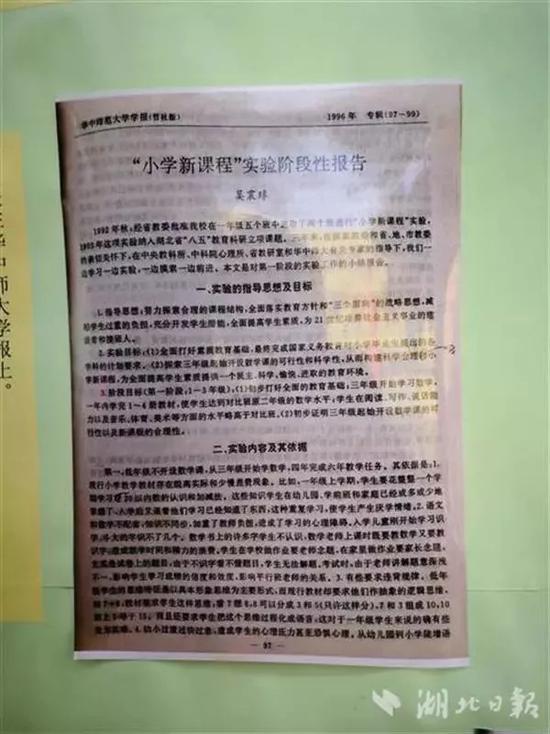 华中师范大学学报(哲社版)
1996年 专辑(97—99)
“小学新课程”实验阶段性报告
吴震球
1992年秋,经省教委批准我校在一年级五个班中 “小学新课程”实验,
1993年这项实验纳入湖北省“八五”教育科研立项课题。三年来,在 省、地、市教委
的亲切关怀下,在中央教科所、中科院心理所、省教研室和华中师大有关专家的指导下,我们一
边学习一边实验,一边摸索一边前进。本文是对第一阶段的实验工作的小结报告。
一、实验的指导思想及目标
1.指导思想:努力探索合理的课程结构,全面落实教育方针和“三个面向”的战略思想,减
轻学生过重的负担,充分开发学生潜能,全面提高学生素质,为21世纪培养社会主义事业的建
设者和接班人。
2.实验目标:(1)全面打好素质教育基础,最终完成国家义务教育对小学毕业生提出的各
学科的计划要求。(2)探索三年级起始开设数学课的可行性和科学性,从而构建科学合理的小
学新课程,为全面提高学生素质提供一个民主、科学、愉快、进取的教育环境。
3.阶段目标(第一阶段,1—3年级),(1)初步打好全面的教育基础,三年级开始学习数学,
一年内学完1—6册教材,使学生达到对比班原二年级的数学水平;学生在阅读、写作、说话能
力以及音乐、体育、美术等方面的水平略高于对比班。(2)初步证明三年级起始开设数学课的可
行性以及新课程的合理性。
二、实验内容及其依据
第一,低年级不开设数学课,从三年级开始学数学,四年完成六年教学任务。其依据是:1.
现行小学数学教材存在较高实际和少慢差费现象。比如,一年级上学期,学生要花整整一个学
期学习 20以内数的认识和加减法,这些知识学生在幼儿园、学前班和家庭已经或多或少地
掌握了。入学后又强着他们学习已经知道了东西,这种重复学习,使学生产生厌学情绪。2.语文
和数学不配套,知识不同步,加重了教师负担,造成了学习的心理障碍。入学儿童刚开始学习识
字,斗大的字识不了几个。数学书上的许多字学生不认识,数学老师上课时既要教数学又要教
识字,造成教学时间和精力的浪费。学生在学校做作业要老师念题,在家里做作业要家长念题。
尤其是试卷上的题目,由于不识字看不懂题目,学生无法解题。考试时,由于老师讲解题意深浅
不一,影响学生学习成绩的信度和效度,影响平行班老师的关系。3.有些要求违背规律。低年
级学生的思维特征是以具体形象思维为主要形式,而现行教材却要求他们作抽象的逻辑思维。
教材要求学生这样思维:看7想8,8可以分成3和5(只许这样分),7和3组成10,10
加上5等于15。而且还要求学生把这个思维过程化成语言;这对于一年级学生来说的确有些
。4.幼小过渡过快过急,造成学生的心理压力甚至恐惧心理。从幼儿园到小学陡增语
— 97 —
大学报上。
湖北日報